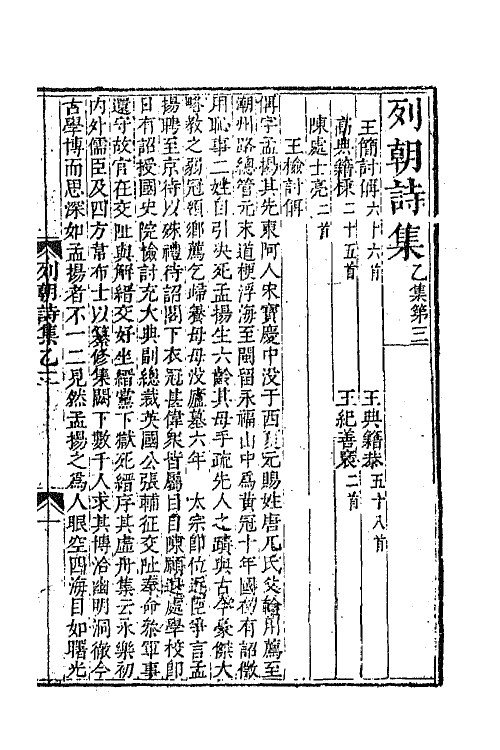 列朝詩集乙集第三
王簡討偁六十六首
王典籍恭五十八首
高典籍棅二十五首
王紀善褒二首
陳處士亮二首
王檢討偁
偁字孟揚其先東阿人宋寶慶中没于西夏元賜姓唐兀氏父翰用薦至
潮州路總管元末道梗浮海至閩留永福山中為黃冠十年國初有詔徵
用恥事二姓自引决死孟揚生六齡其母手疏先人之蹟與古今豪傑大
略教之弱冠領鄉薦乞歸養母母没廬墓六年 太宗即位近臣爭言孟
揚聘至京待以殊禮待詔闕下衣冠甚偉衆皆屬目自陳願退處學校即
日有詔授國史院檢討充大典副總裁英國公張輔征交阯奉命叅軍事
還守故官在交阯與解縉交好坐縉黨下獄死縉序其虛舟集云永樂初
内外儒臣及四方韋布士以纂修集闕下數千人求其博洽幽明洞徹今
古學博而思深如孟揚者不一二見然孟揚之為人眼空四海目如曙光
列朝詩集乙